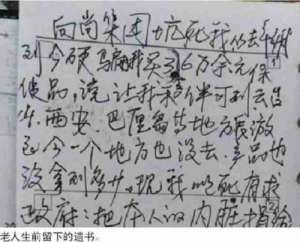 向尚集团坑死我的去年
到今硬骗我买了6万余元保
健品,说让我和伴可到云台
山、西安、巴厘岛等地方旅游
至今一个地方也没去,产品也
没拿到多少。现我以死有求
政府:把本人的内脏捐给
老人生前留下的遗书。